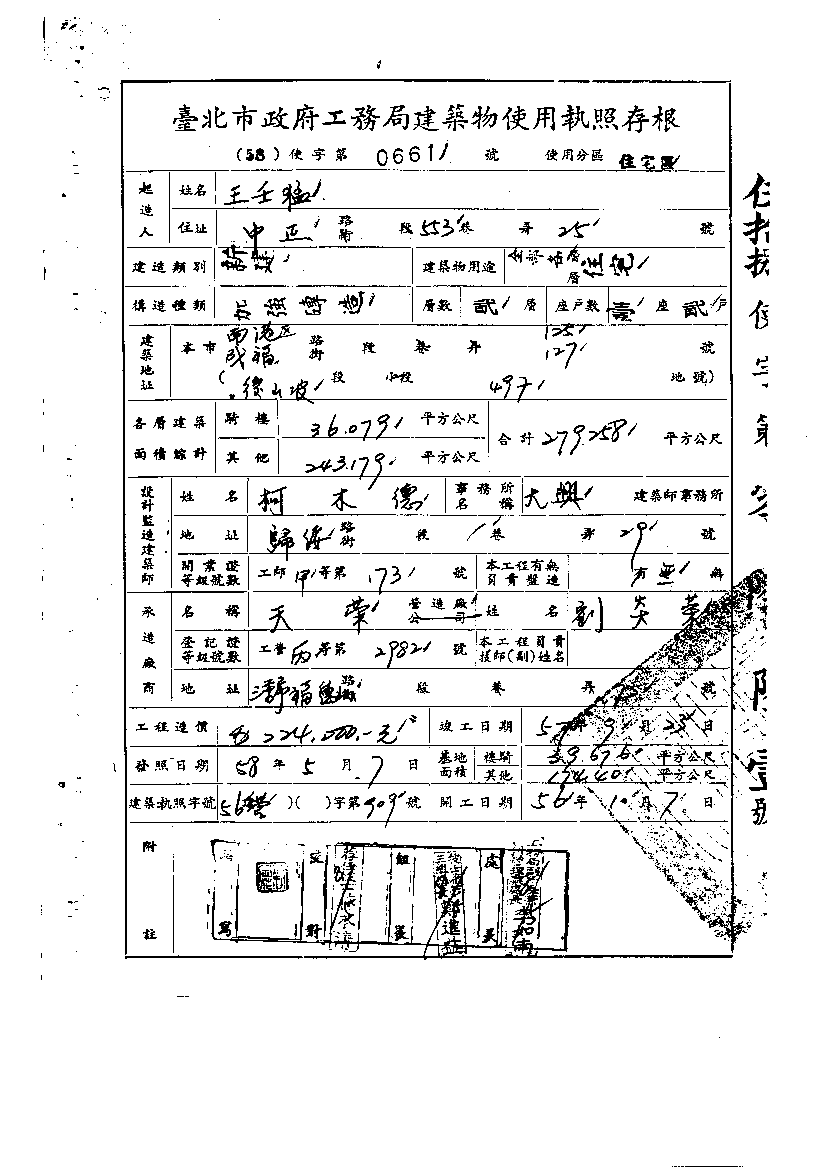 臺北市政府工務局建築物使用執照存根
(58) 使字第 0661 號 使用分區 住宅區
起造人 姓名 王壬猛
住址 中正 路街 段 553 巷 弄 25 號
建造類別 新建 建築物用途 住宅
構造種類 加強磚造 層數 貳 層 座戶數 壹 座 貳 戶
建築地址 本市 南港区 成福 路街 段 巷 弄 125 127 號
( 後山坡 段 小段 497 地號)
各層建築面積綜計 騎樓 36.079 平方公尺 合計 279.258 平方公尺
其他 243.179 平方公尺
設計監造建築師 姓名 柯木德 事務所名稱 大興 建築師事務所
地址 歸綏 路街 段 1 巷 弄 29 號
開業證等級號數 工師 甲 等第 173 號 本工程有無負責監造 有 無
承造廠商 名稱 天榮 營造廠公司 姓名 劉炎榮
登記證等級號數 工營 丙 等第 2982 號 本工程負責技師(副)姓名
地址 路街 段 巷 弄 號
工程造價 224,000.-元 竣工日期 57 年 9 月 23 日
發照日期 58 年 5 月 7 日 基地面積 樓騎 平方公尺
其他 174.40 平方公尺
建築執照字號 56 ( )( )字第 909 號 開工日期 56 年 10 月 7 日
附註
校對 組長 處長